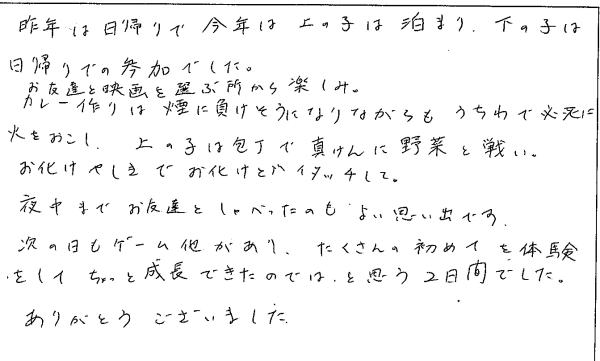 昨年は日帰りで今年は上の子は泊まり、下の子は
日帰りでの参加でした。
お友達と映画を選ぶ所から楽しみ。
カレー作りは煙に負けそうになりながらも うちわで必死に
火をおこし、上の子は包丁で真けんに野菜と戦い。
お化けやしきでお化けとハイタッチして。
夜中までお友達としゃべったのもよい思い出です。
次の日もゲーム他があり、たくさんの初めてを体験
をして ちょっと成長できたのでは、と思う2日間でした。
ありがとうございました